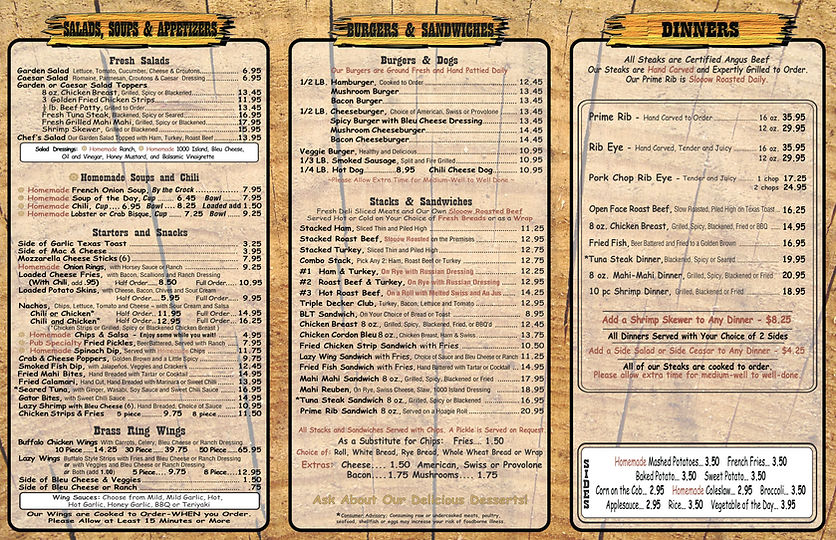 SALADS, SOUPS & APPETIZERS
Fresh Salads
Garden Salad Lettuce, Tomato, Cucumber, Cheese & Croutons 6.95
Caesar Salad Romaine, Parmesan, Croutons & Caesar Dressing 6.95
Garden or Caesar Salad Toppers
8 oz. Chicken Breast, Grilled, Spicy or Blackened 13.45
3 Golden Fried Chicken Strips 11.95
½ lb. Beef Patty, Grilled to Order 13.45
Fresh Tuna Steak, Blackened, Spicy or Seared 16.95
Fresh Grilled Mahi Mahi, Grilled, Spicy or Blackened 17.95
Shrimp Skewer, Grilled or Blackened 15.95
Chef's Salad Our Garden Salad Topped with Ham, Turkey, Roast Beef 13.95
Salad Dressings: Homemade Ranch, Homemade 1000 Island, Bleu Cheese,
Oil and Vinegar, Honey Mustard, and Balsamic Vinaigrette
Homemade Soups and Chili
Homemade French Onion Soup, By the Crock 7.95
Homemade Soup of the Day, Cup .... 6.45 Bowl .... 7.95
Homemade Chili, Cup .... 6.95 Bowl .... 8.25 Loaded add 1.50
Homemade Lobster or Crab Bisque, Cup .... 7.25 Bowl .... 9.25
Starters and Snacks
Side of Garlic Texas Toast 3.25
Side of Mac & Cheese 3.95
Mozzarella Cheese Sticks (6) 7.95
Homemade Onion Rings, with Horsey Sauce or Ranch 9.25
Loaded Cheese Fries, with Bacon, Scallions and Ranch Dressing
(With Chili, add .95) Half Order..8.50 Full Order...10.95
Loaded Potato Skins, with Cheese, Bacon, Chives and Sour Cream
Half Order...5.95 Full Order... 9.95
Nachos, Chips, Lettuce, Tomato and Cheese ~ with Sour Cream and Salsa
Chili or Chicken* Half Order..11.95 Full Order...14.95
Chili and Chicken* Half Order..12.95 Full Order...16.25
(*Chicken Strips or Grilled, Spicy or Blackened Chicken Breast)
Homemade Chips & Salsa ~ Enjoy some while you wait! 4.95
Pub Specialty Fried Pickles, Beer Battered, Served with Ranch 7.95
Homemade Spinach Dip, Served with Homemade Chips 11.75
Crab & Cheese Poppers, Golden Brown and a Little Spicy 9.75
Smoked Fish Dip, with Jalapeños, Veggies and Crackers 12.45
Fried Mahi Bites, Hand Breaded with Tartar or Cocktail 14.95
Fried Calamari, Hand Cut, Hand Breaded with Marinara or Sweet Chili 13.95
*Seared Tuna, with Ginger, Wasabi, Soy Sauce and Sweet Chili Sauce 16.95
Gator Bites, with Sweet Chili Sauce 14.95
Lazy Shrimp with Bleu Cheese (6), Hand Breaded, Choice of Sauce 10.95
Chicken Strips & Fries 5 piece 9.75 8 piece 11.50
Brass Ring Wings
Buffalo Chicken Wings With Carrots, Celery, Bleu Cheese or Ranch Dressing
10 Piece....14.25 30 Piece....39.75 50 Piece....65.95
Lazy Wings Buffalo Style Strips with Fries and Bleu Cheese or Ranch Dressing
or with Veggies and Bleu Cheese or Ranch Dressing
or Both (add 1.00) 5 Piece....9.75 8 Piece...12.95
Side of Bleu Cheese & Veggies 1.50
Side of Bleu Cheese or Ranch .75
Wing Sauces: Choose from Mild, Mild Garlic, Hot,
Hot Garlic, Honey Garlic, BBQ or Teriyaki
Our Wings are Cooked to Order-WHEN you Order.
Please Allow at Least 15 Minutes or More
BURGERS & SANDWICHES
Burgers & Dogs
Our Burgers are Ground Fresh and Hand Pattied Daily
1/2 LB. Hamburger, Cooked to Order 12.45
Mushroom Burger 12.95
Bacon Burger 13.45
1/2 LB. Cheeseburger, Choice of American, Swiss or Provolone 13.45
Spicy Burger with Bleu Cheese Dressing 13.45
Mushroom Cheeseburger 14.45
Bacon Cheeseburger 14.45
Veggie Burger, Healthy and Delicious 10.95
1/3 LB. Smoked Sausage, Split and Fire Grilled 10.95
1/4 LB. Hot Dog 8.95 Chili Cheese Dog 10.95
~Please Allow Extra Time for Medium-Well to Well Done ~
Stacks & Sandwiches
Fresh Deli Sliced Meats and Our Own Slooow Roasted Beef
Served Hot or Cold on Your Choice of Fresh Breads or as a Wrap
Stacked Ham, Sliced Thin and Piled High 11.25
Stacked Roast Beef, Slooow Roasted on the Premises 12.95
Stacked Turkey, Sliced Thin and Piled High 12.75
Combo Stack, Pick Any 2: Ham, Roast Beef or Turkey 12.75
#1 Ham & Turkey, On Rye with Russian Dressing 12.25
#2 Roast Beef & Turkey, On Rye with Russian Dressing 12.95
#3 Hot Roast Beef, On a Roll with Melted Swiss and Au Jus 14.25
Triple Decker Club, Turkey, Bacon, Lettuce and Tomato 12.95
BLT Sandwich, On Your Choice of Bread or Toast 8.95
Chicken Breast 8 oz., Grilled, Spicy, Blackened, Fried, or BBQ'd 12.45
Chicken Cordon Bleu 8 oz., Chicken Breast, Ham & Swiss 13.75
Fried Chicken Strip Sandwich with Fries 10.50
Lazy Wing Sandwich with Fries, Choice of Sauce and Bleu Cheese or Ranch 11.25
Fried Fish Sandwich with Fries, Hand Battered with Tartar or Cocktail 14.95
Mahi Mahi Sandwich 8 oz., Grilled, Spicy, Blackened or Fried 17.95
Mahi Reuben, On Rye, Swiss Cheese, Slaw, 1000 Island Dressing 18.95
*Tuna Steak Sandwich 8 oz., Grilled, Spicy or Blackened 16.95
Prime Rib Sandwich 8 oz., Served on a Hoagie Roll 20.95
All Stacks and Sandwiches Served with Chips. A Pickle is Served on Request.
As a Substitute for Chips: Fries.... 1.50
Choice of: Roll, White Bread, Rye Bread, Whole Wheat Bread or Wrap
Extras: Cheese.... 1.50 American, Swiss or Provolone
Bacon....1.75 Mushrooms.... 1.75
Ask About Our Delicious Desserts!
*Consumer Advisory: Consuming raw or undercooked meats, poultry,
seafood, shellfish or eggs may increase your risk of foodborne illness.
DINNERS
All Steaks are Certified Angus Beef
Our Steaks are Hand Carved and Expertly Grilled to Order.
Our Prime Rib is Slooow Roasted Daily.
Prime Rib ~ Hand Carved to Order 16 oz. 35.95
12 oz. 29.95
Rib Eye ~ Hand Carved, Tender and Juicy 16 oz. 35.95
12 oz. 29.95
Pork Chop Rib Eye ~ Tender and Juicy 1 chop 17.25
2 chops 24.95
Open Face Roast Beef, Slow Roasted, Piled High on Texas Toast 16.25
8 oz. Chicken Breast, Grilled, Spicy, Blackened, Fried or BBQ 14.95
Fried Fish, Beer Battered and Fried to a Golden Brown 16.95
*Tuna Steak Dinner, Blackened, Spicy, or Seared 19.95
8 oz. Mahi-Mahi Dinner, Grilled, Spicy, Blackened or Fried 20.95
10 pc Shrimp Dinner, Grilled, Blackened or Fried 18.95
Add a Shrimp Skewer to Any Dinner ~ $8.25
All Dinners Served with Your Choice of 2 Sides
Add a Side Salad or Side Ceasar to Any Dinner ~ $4.25
All of our Steaks are cooked to order.
Please allow extra time for medium-well to well-done.
SIDES
Homemade Mashed Potatoes... 3.50 French Fries... 3.50
Baked Potato... 3.50 Sweet Potato... 3.50
Corn on the Cob... 2.95 Homemade Coleslaw... 2.95 Broccoli... 3.50
Applesauce... 2.95 Rice... 3.50 Vegetable of the Day... 3.95